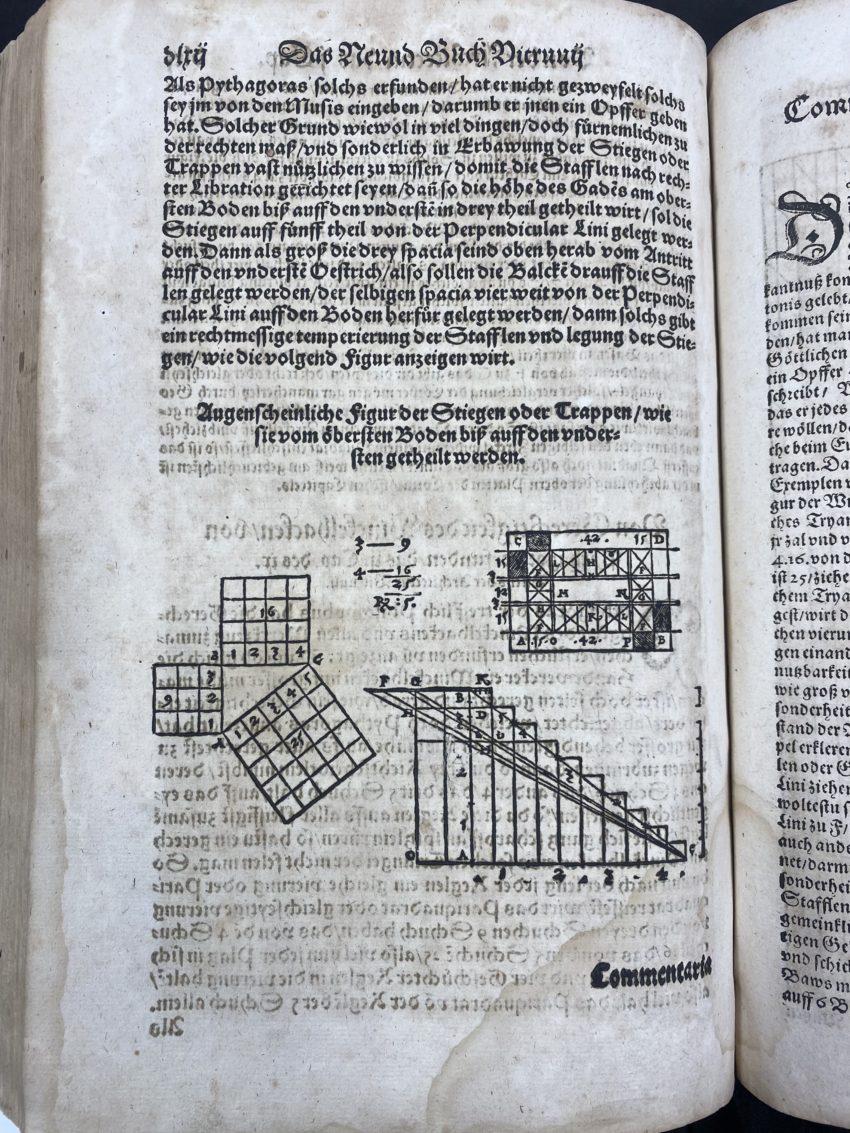 dlxij Das Neund Buch Vitruuij
Als Pythagoras solchs erfunden/ hat er nicht gezweyfelt solchs
sey jm von den Musis eingeben/ darumb er jnen ein Opffer geben
hat. Solcher Grund wiewol in viel dingen/ doch fürnemlichen zu
der rechten maß/ vnd sonderlich in Erbawung der Stiegen oder
Trappen vast nützlichen zu wissen/ domit die Stafflen nach rech-
ter Libration gerichtet seyen/ dañ so die höhe des Gadẽs am ober-
sten Boden biß auff den vnderstẽ in drey theil getheilt wirt/ sol die
Stiegen auff fünff theil von der Perpendicular Lini gelegt wer-
den. Dann als groß die drey spacia seind oben herab vom Antritt
auff den vnderstẽ Oestrich/ also sollen die Balckẽ drauff die Staff
len gelegt werden/ der selbigen spacia vier weit von der Perpendi-
cular Lini auff den Boden herfür gelegt werden/ dann solchs gibt
ein rechtmessige temperierung der Stafflen vnd legung der Stie-
gen/ wie die volgend Figur anzeigen wirt.
Augenscheinliche Figur der Stiegen oder Trappen/ wie
sie vom öbersten Boden biß auff den vnder-
sten getheilt werden.
3 — 9
4 — 16
25
C .42. 15 D
A 15.0 .42. P B
16
1 2 3 4
9 3
2
1
A 1 2 3 4 5
25
F G K
B
D
2
1
A
1 2 3 4
Commentaria
Com
D
kantnuß kon
tonis gelebt/
kommen sein
den/ hat man
Göttlichen
ein Opffer
schreibt/
das er jedes
re wöllen/ d
che beim Eu
tragen. Da
Exemplen
gur der Wi
ches Tryan
jr zal vnd v
4.16. von d
ist 25/ ziehe
chem Trya
gest/ wirt d
chen vierun
gen einand
nutzbarkeit
wie groß v
sonderheit
stand der
pel erkleren
len oder G
Lini ziehen
woltestu s
Lini zu F/
auch ande
net/ darm
sonderhei
Stafflen
gemeinkli
tigen Ge
vnd schick
Baws m
auff 6 B